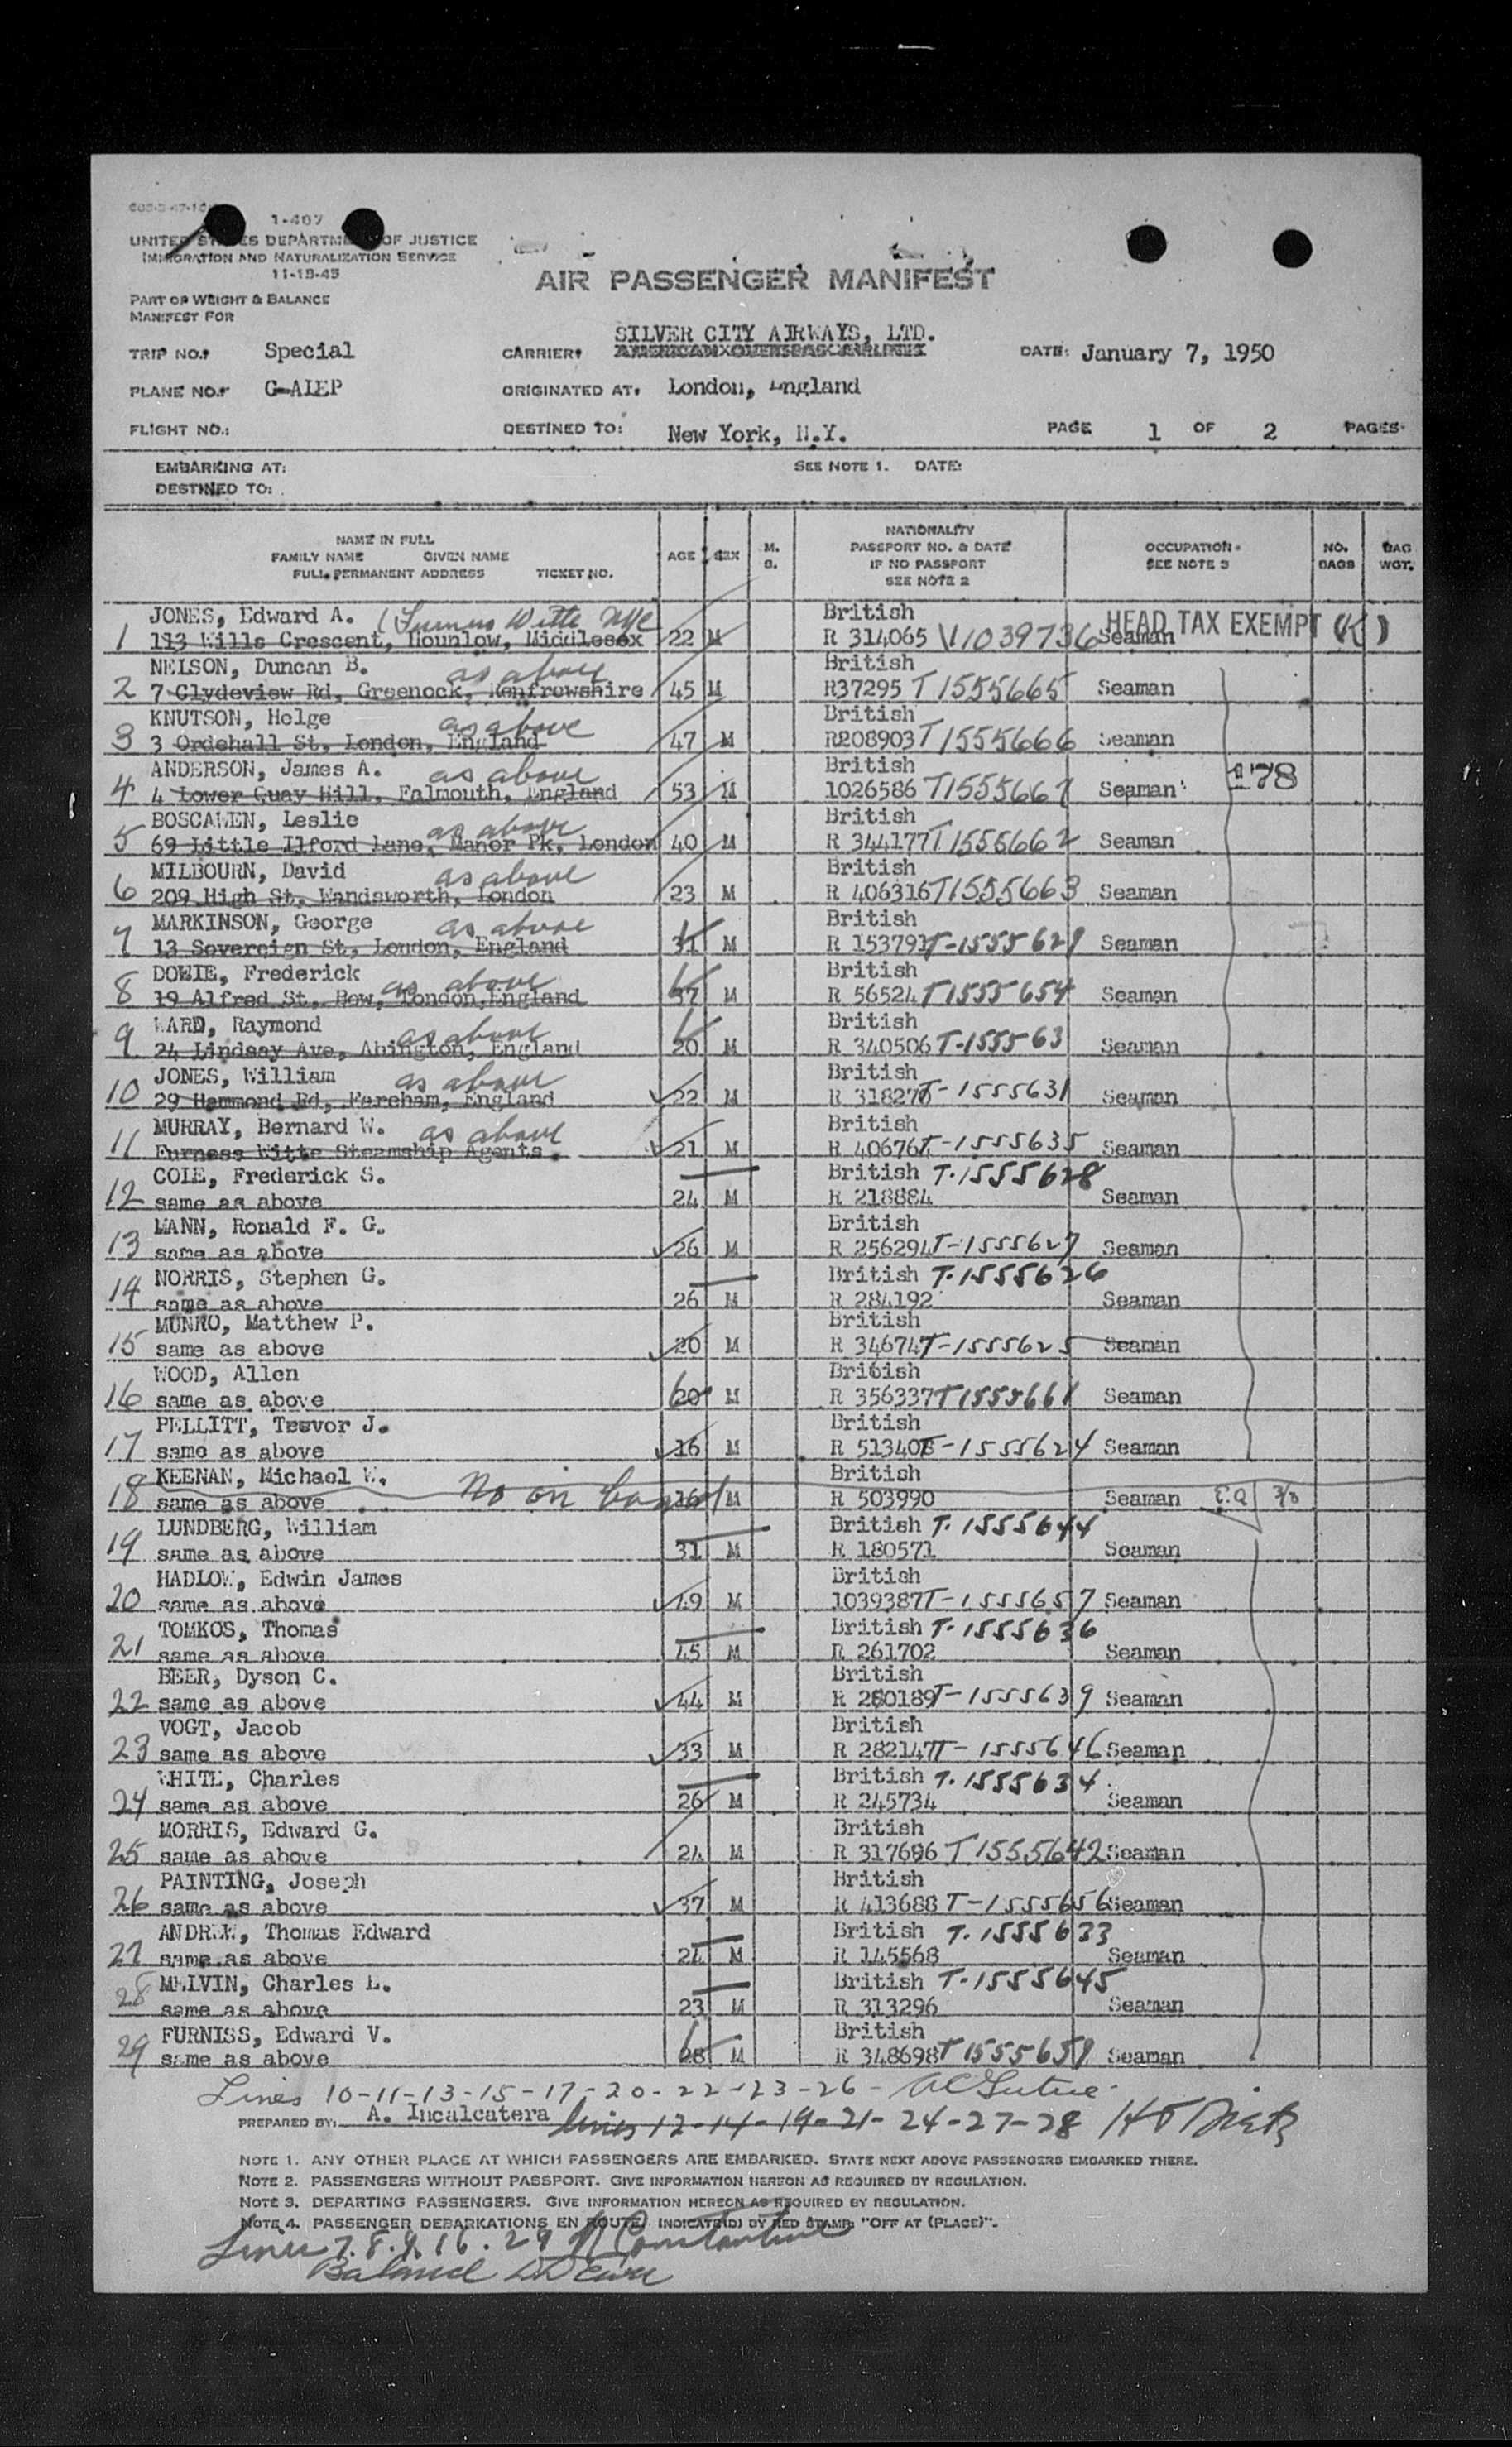 1-407
UNITED STATES DEPARTMENT OF JUSTICE
IMMIGRATION AND NATURALIZATION SERVICE
11-15-45
AIR PASSENGER MANIFEST
PART OF WEIGHT & BALANCE
MANIFEST FOR
SILVER CITY AIRWAYS, LTD.
TRIP NO.: Special CARRIER: AMERICAN OVERSEAS AIRLINES DATE: January 7, 1950
PLANE NO.: G-AIEP ORIGINATED AT: London, England
FLIGHT NO.: DESTINED TO: New York, N.Y. PAGE 1 OF 2 PAGES
EMBARKING AT: SEE NOTE 1. DATE:
DESTINED TO:
NAME IN FULL
FAMILY NAME GIVEN NAME
FULL PERMANENT ADDRESS TICKET NO.
AGE SEX M. S.
NATIONALITY
PASSPORT NO. & DATE
IF NO PASSPORT
SEE NOTE 2
OCCUPATION
SEE NOTE 3
NO. BAGS
BAG WGT.
JONES, Edward A. Furness Witte British HEAD TAX EXEMPT (K)
1 113 Wills Crescent, Hounlow, Middlesex 22 M R 314065 V1039736 Seaman
NELSON, Duncan B. as above British
2 7 Clydeview Rd, Greenock, Renfrewshire 45 M R37295 T1555665 Seaman
KNUTSON, Helge as above British
3 3 Ordehall St, London, England 47 M R208903 T1555666 Seaman
ANDERSON, James A. as above British 178
4 4 Lower Quay Hill, Falmouth, England 53 M 1026586 T1555667 Seaman
BOSCAWEN, Leslie as above British
5 69 Little Ilford Lane, Manor Pk, London 40 M R 344177 T1555662 Seaman
MILBOURN, David as above British
6 209 High St, Wandsworth, London 23 M R 406316 T1555663 Seaman
MARKINSON, George as above British
7 13 Sovereign St, London, England 31 M R 153791 T-1555629 Seaman
DOWIE, Frederick as above British
8 19 Alfred St, Bow, London, England 37 M R 56524 T1555654 Seaman
WARD, Raymond as above British
9 24 Lindsay Ave, Abington, England 20 M R 340506 T-155563 Seaman
JONES, William as above British
10 29 Hammond Rd, Fareham, England 22 M R 31827 T-1555631 Seaman
MURRAY, Bernard W. as above British
11 Furness Witte Steamship Agents. 21 M R 40676 T-1555635 Seaman
COLE, Frederick S. British T-1555628
12 same as above 24 M R 218884 Seaman
MANN, Ronald F. G. British
13 same as above 26 M R 256294 T-1555627 Seaman
NORRIS, Stephen G. British T-1555626
14 same as above 26 M R 284192 Seaman
MUNRO, Matthew P. British
15 same as above 20 M R 34674 T-1555625 Seaman
WOOD, Allen Britsish
16 same as above 20 M R 356337 T1555661 Seaman
PELLITT, Teevor J. British
17 same as above 16 M R 51340 T-1555624 Seaman
KEENAN, Michael W. British
18 same as above No on board 16 M R 503990 Seaman
LUNDBERG, William British T-1555644
19 same as above 31 M R 180571 Seaman
HADLOW, Edwin James British
20 same as above 49 M 1039387 T-1555657 Seaman
TOMKOS, Thomas British T-1555636
21 same as above 45 M R 261702 Seaman
BEER, Dyson C. British
22 same as above 44 M R 280189 T-1555639 Seaman
VOGT, Jacob British
23 same as above 33 M R 282147 T-1555646 Seaman
WHITE, Charles British T-1555634
24 same as above 26 M R 245734 Seaman
MORRIS, Edward G. British
25 same as above 24 M R 317696 T1555642 Seaman
PAINTING, Joseph British
26 same as above 37 M R 413688 T-1555656 Seaman
ANDREW, Thomas Edward British T-1555633
27 same as above 24 M R 145568 Seaman
MELVIN, Charles L. British T-1555645
28 same as above 23 M R 313296 Seaman
FURNISS, Edward V. British
29 same as above 28 M R 348698 T1555659 Seaman
Lines 10-11-13-15-17-20-22-23-26-
PREPARED BY: A. Incalcatera lines 12-14-19-21-24-27-28
NOTE 1. ANY OTHER PLACE AT WHICH PASSENGERS ARE EMBARKED. STATE NEXT ABOVE PASSENGERS EMBARKED THERE.
NOTE 2. PASSENGERS WITHOUT PASSPORT. GIVE INFORMATION HEREON AS REQUIRED BY REGULATION.
NOTE 3. DEPARTING PASSENGERS. GIVE INFORMATION HEREON AS REQUIRED BY REGULATION.
NOTE 4. PASSENGER DEBARKATIONS EN ROUTE, INDICATE(D) BY RED STAMP: "OFF AT (PLACE)".
Lines 7.8.9.16.29 Constantine
Balance